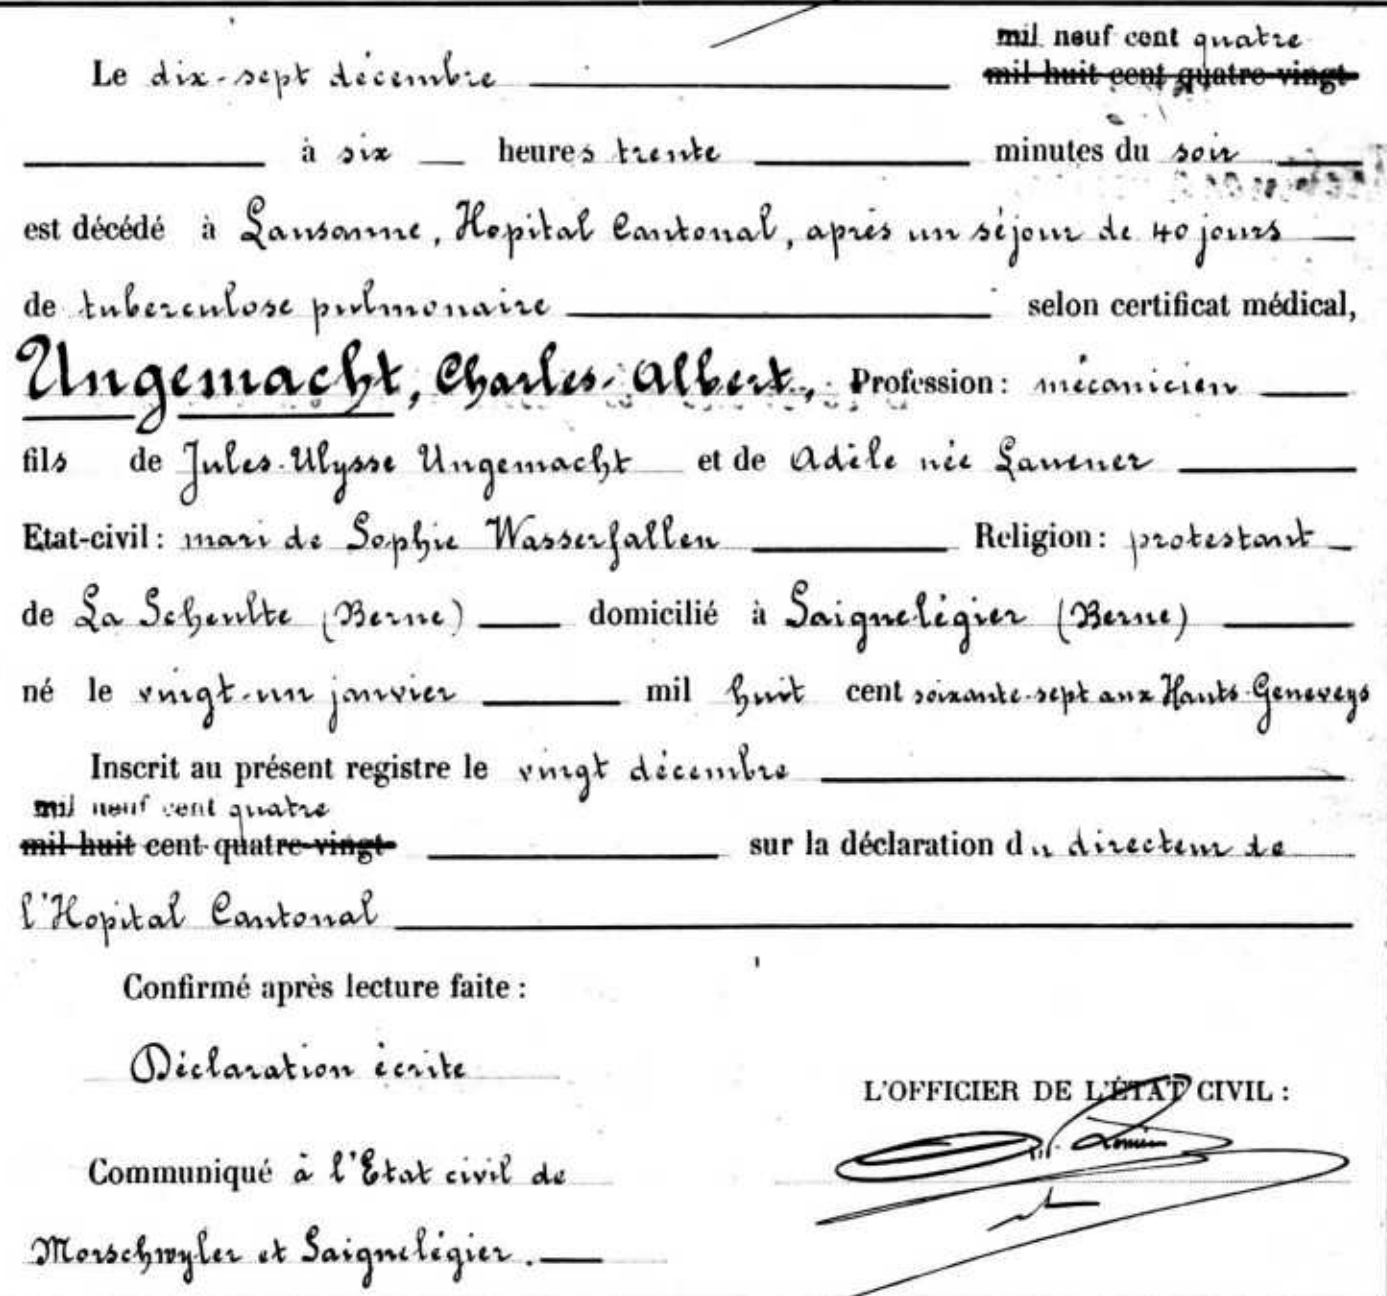 mil neuf cent quatre
Le dix-sept décembre mil huit cent quatre-vingt
à six heures trente minutes du soir
est décédé à Lausanne, Hopital Cantonal, après un séjour de 40 jours
de tuberculose pulmonaire selon certificat médical,
Ungemacht, Charles-Albert, Profession: mécanicien
fils de Jules-Ulysse Ungemacht et de Adèle née Lauener
Etat-civil: mari de Sophie Wasserfallen Religion: protestant
de La Scheulte (Berne) domicilié à Saignelégier (Berne)
né le vingt-un janvier mil huit cent soixante-sept aux Hauts-Geneveys
Inscrit au présent registre le vingt décembre
mil neuf cent quatre
mil huit cent quatre-vingt sur la déclaration du directeur de
l'Hopital Cantonal
Confirmé après lecture faite:
Déclaration écrite
L'OFFICIER DE L'ÉTAT CIVIL:
Communiqué à l'Etat civil de
Morschwyler et Saignelégier.